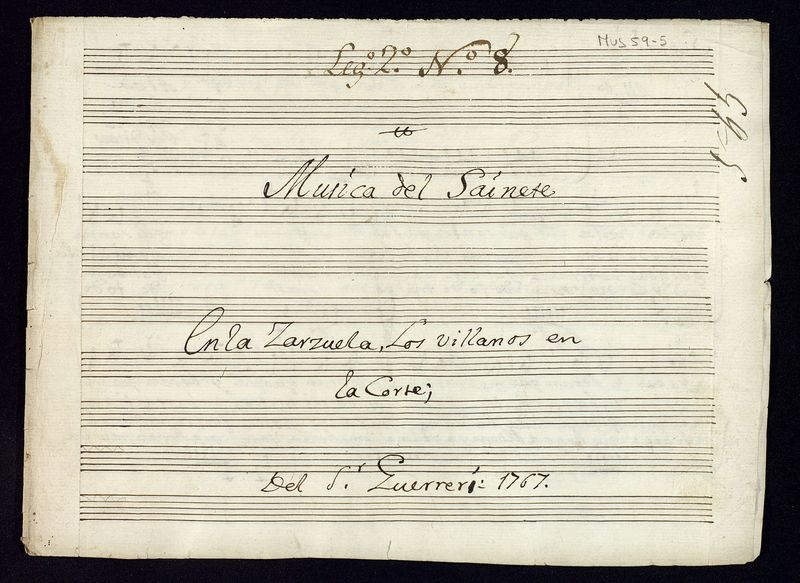 Mus 59-5
Leg.º 2.º N.º 8.
Musica del Sainete
En la Zarzuela, Los villanos en
la Corte;
Del S.r Guerrero: 1767.